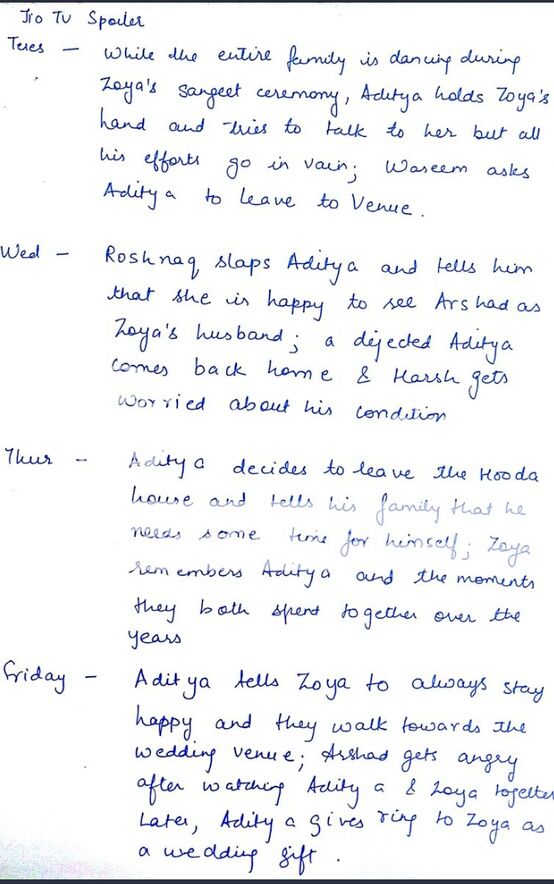 Jio TV Spoiler
Tues - While the entire family is dancing during
Zoya's sangeet ceremony, Aditya holds Zoya's
hand and tries to talk to her but all
his efforts go in vain; Waseem asks
Aditya to leave to Venue.
Wed - Roshnaq slaps Aditya and tells him
that she is happy to see Arshad as
Zoya's husband; a dejected Aditya
comes back home & Harsh gets
worried about his condition
Thur - Aditya decides to leave the Hooda
house and tells his family that he
needs some time for himself; Zoya
remembers Aditya and the moments
they both spent together over the
years
Friday - Aditya tells Zoya to always stay
happy and they walk towards the
wedding venue; Arshad gets angry
after watching Aditya & Zoya together
Later, Aditya gives ring to Zoya as
a wedding gift.